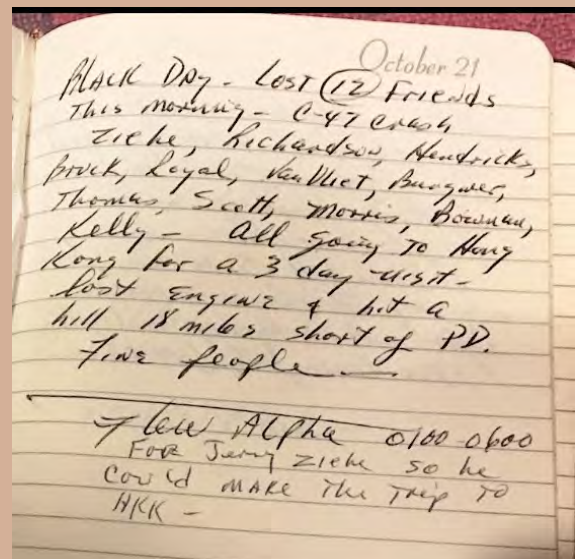 October 21
Black Day - Lost 12 Friends
This Morning - C-47 Crash
Ziehe, Richardson, Hendricks,
Bruck, Loyal, Van Vliet, Burgner,
Thomas, Scott, Morris, Bowman,
Kelly - All going to Hong
Kong for a 3 day visit -
Lost Engine & hit a
hill 18 miles short of PD.
Fine people -
Flew Alpha 0100-0600
For Jerry Ziehe so he
Could Make The Trip To
HKK -